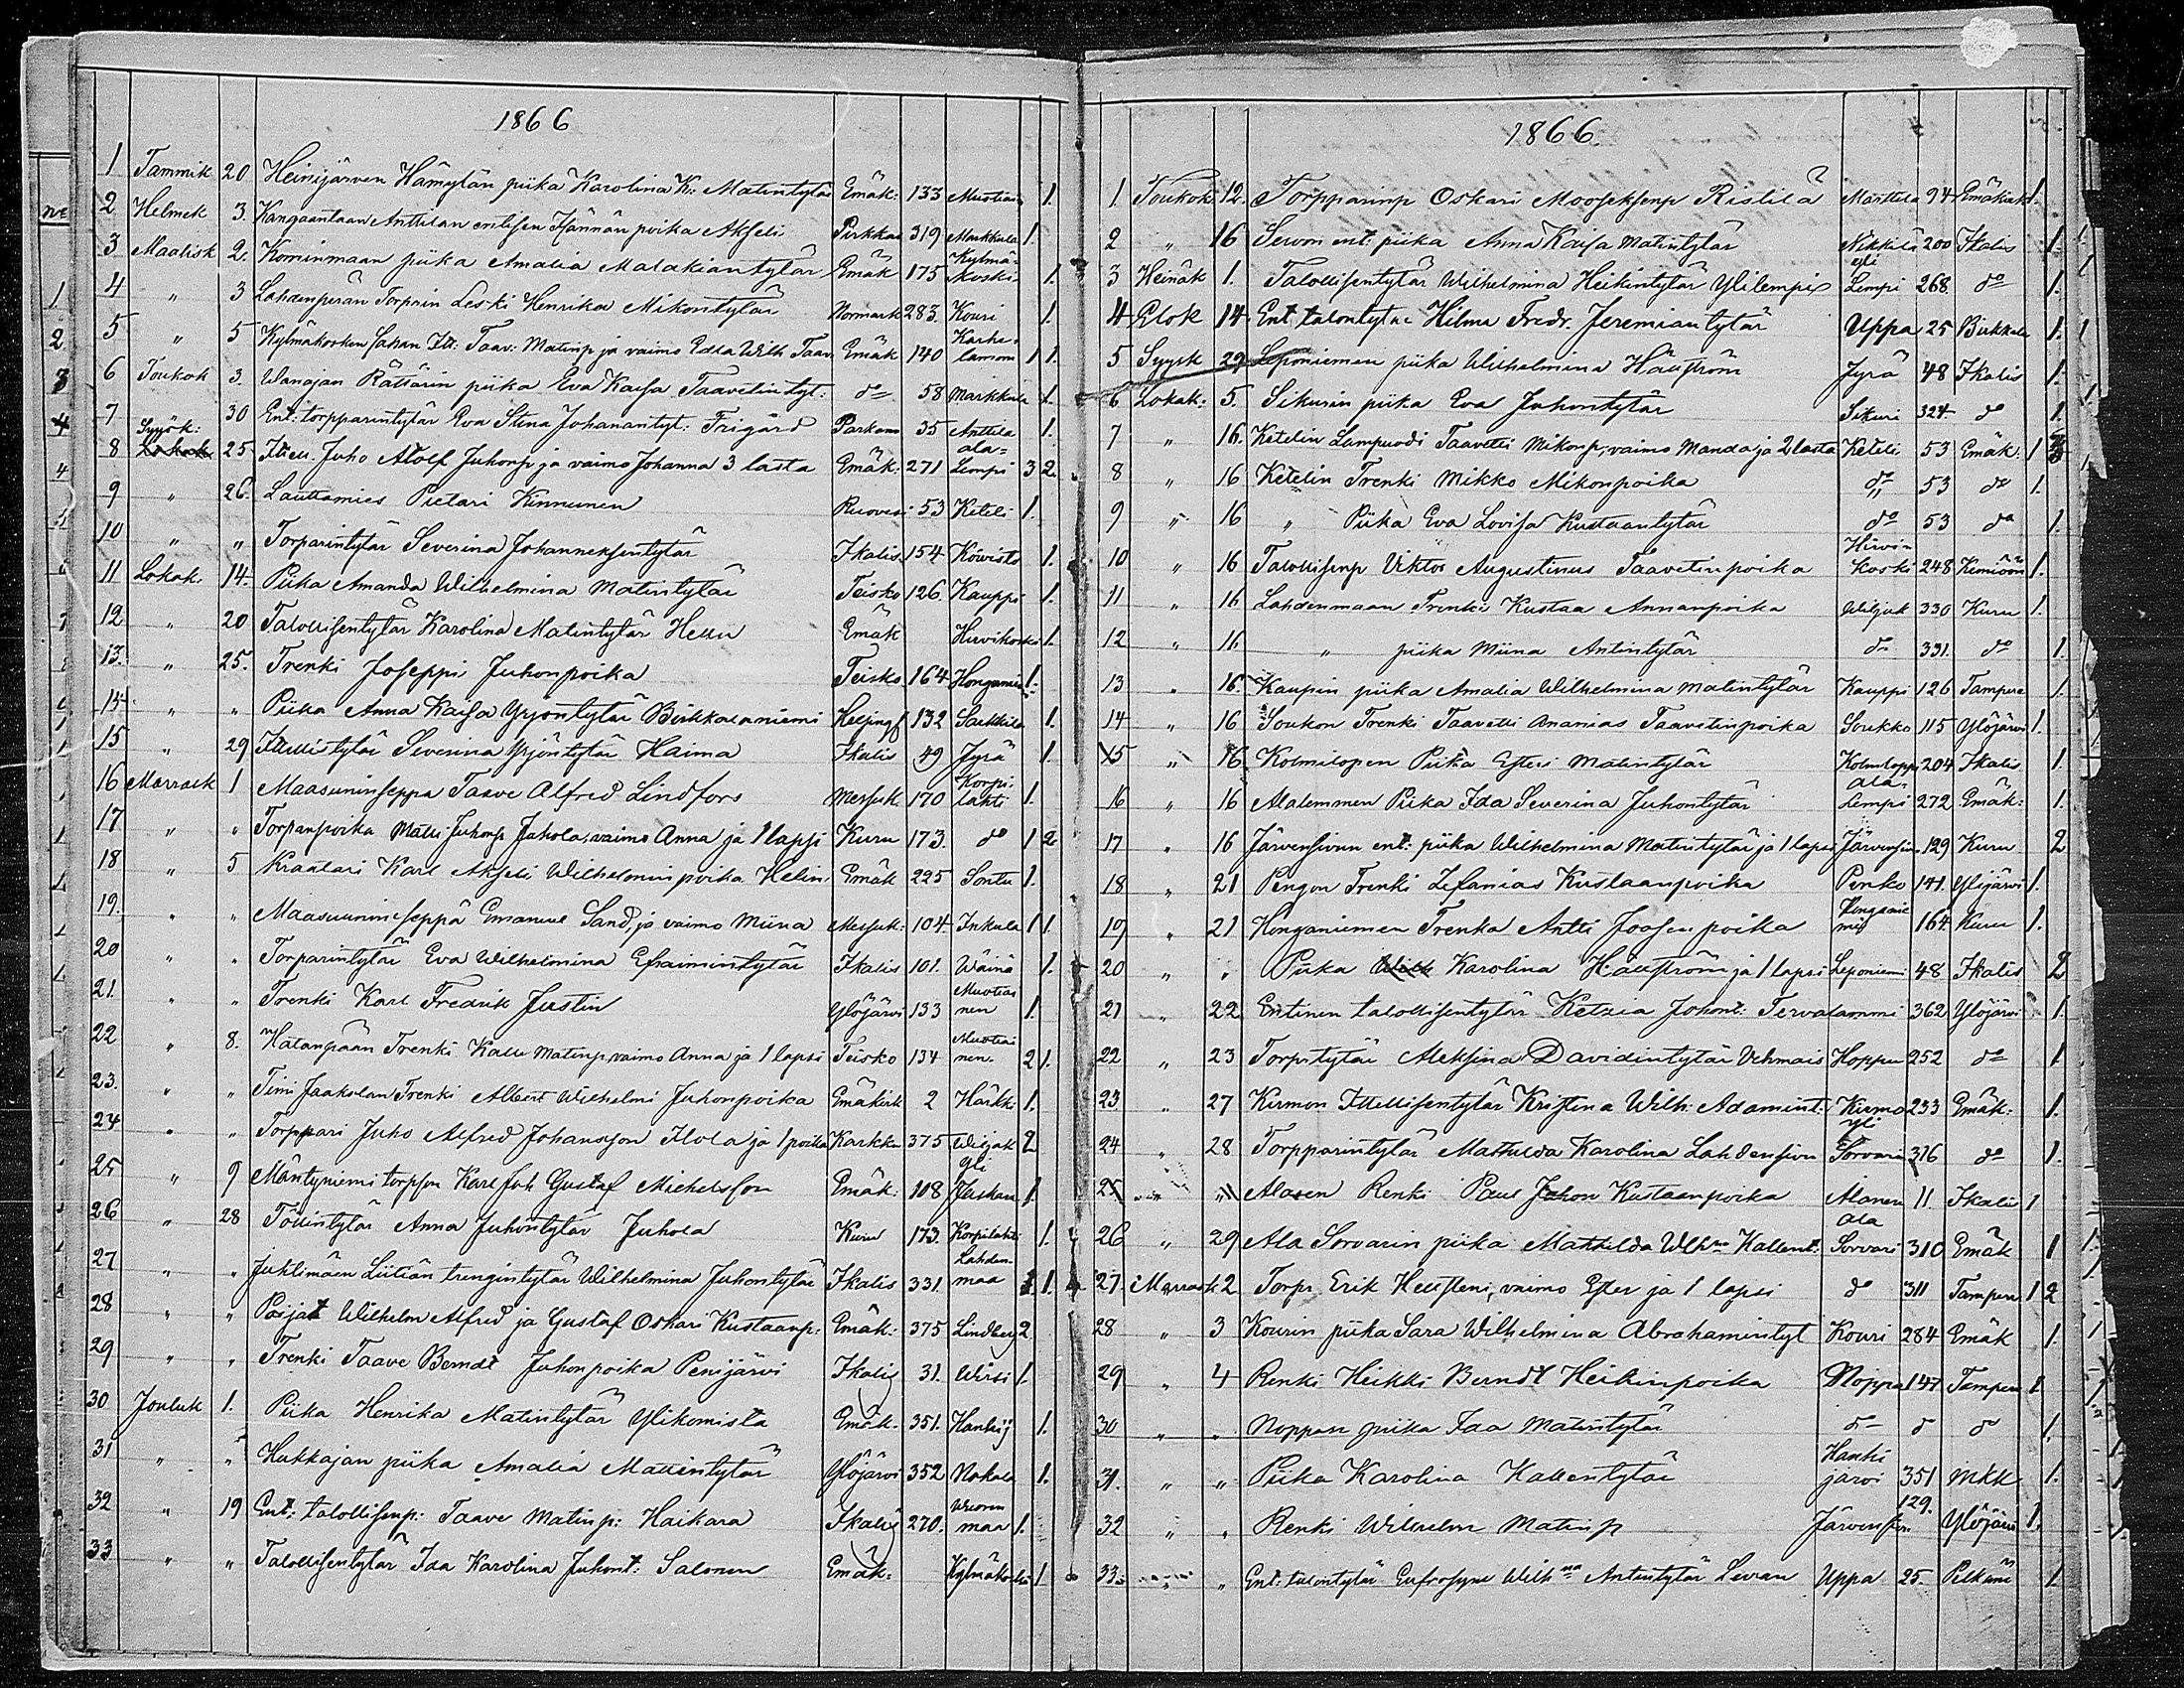 1866
1 Tammik 20 Heinijärven Hämylän piika Karolina K: Matintytär Emäk: 133 Muotiai 1.
2 Helmik 3. Kangaantaan Anttilan entisen poika Akseli Pirkkas 319 Markkula 1.
3 Maalisk 2. Komimaan piika Amalia Malakiantytär Emäk 175 Kylmä-koski 1.
4 " 3 Lahdenperän Torprin Leski Henrika Mikontytär Normark 283. Kouri 1.
5 " 5 Kylmäkosken Sahan Itt: Taav: Matinp ja vaimo Edla Wilh Taav. Emäk 140 1 1.
6 Toukok 3. Wanajan Rättärin piika Eva Kaisa Taavetintyt: do 58 Markkula 1.
7 30 Ent: torpparintytär Eva Stina Johanantyt: Frigård Parkano 35 Anttila 1.
8 Syysk: 25 Ittell. Juho Adolf Juhonp ja vaimo Johanna 3 lasta Emäk: 271 ala-Lempi 3 2.
9 " 26. Lauttamies Pietari Kinnunen Ruovesi 53 Keteli 1.
10 " " Torparintytär Severina Johanneksentytär Ikalis 154 Koivisto 1.
11 Lokak. 14. Piika Amanda Wilhelmina Matintytär Teisko 126. Kauppi 1.
12 " 20 Talollisentytär Karolina Matintytär Hellu Emäk Hirvikoski 1.
13. " 25. Trenki Joseppi Juhonpoika Teisko 164 Honganie 1.
14 " " Piika Anna Kaisa Yrjöntytär Birkkalaniemi Helsingf 132 Saukkila 1.
15 " 29 Ittellistytär Severina Yrjöntytär Haima Ikalis 49 Jyrä 1.
16 Marrask 1 Maasuninseppä Taave Alfred Lindfors Messuk 170 Korpi-lahti 1.
17 " " Torpanpoika Matti Juhonp Juhola, vaimo Anna ja 1 lapsi Kuru 173. do 1 2
18 " 5 Kraatari Karl Akseli Wilhelminpoika Helin Emäk 225 Sontu 1.
19. " " Maasuuninseppä Emanuel Sand, ja vaimo Miina Messuk: 104. Inkula 1 1.
20 " " Torparintytär Eva Wilhelmina Efraimintytär Ikalis 101. Wäinä 1.
21. " " Trenki Karl Fredrik Justin Ylöjärvi 133 Muotiainen 1.
22 " 8. Hatanpään Trenki Kalle Matinp, vaimo Anna ja 1 lapsi Teisko 134 Muotiainen. 2 1.
23. " " Timi Jaakolan Trenki Albert Wilhelmi Juhonpoika Emäkirk 2 Härkki 1.
24 " " Torppari Juho Alfred Johansson Ilola ja 1 poika Karkku 375 Wiljak 2
25 " 9 Mäntyniemi torpson Karl Joh Gustaf Michelsson Emäk: 108 Yli Juskan 1.
26 " 28 Töllintytär Anna Juhontytär Juhola Kuru 173. Korpilahti 1.
27 " " Juhtimäen Liitiän trengintytär Wilhelmina Juhontytär Ikalis 331. Lahden-maa 1.
28 " " Pojat Wilhelm Alfred ja Gustaf Oskari Kustaanp: Emäk: 375 Lindberg 2
29 " " Trenki Taave Berndt Juhonpoika Penijärvi Ikalis 31. Wirsi 1.
30 Jouluk 1. Piika Henrika Matintytär Ylikomista Emäk: 351. Hankij 1.
31 " " Hukkajan piika Amalia Mattintytär Ylöjärvi 352 Nokala 1.
32 " 19 Ent: talollisenp: Taave Matinp: Haikara Ikalis 270. Wuorenmaa 1.
33 " " Talollisentytär Ida Karolina Juhont: Salonen Emäk: Kylmäkoski 1
1866
1. Toukok 12. Torpparinp Oskari Mooseksenp Ristilä Marttila 94 Emäkirk 1.
2 " 16 Sewon ent: piika Anna Kaisa Matintytär Nikkilä 200 Ikalis 1.
3 Heinäk 1. Talollisentytär Wilhelmina Heikintytär Ylilempi yli Lempi 268. do 1.
4 Elok 14. Ent talontytär Hilma Fredr. Jeremiantytär Uppa 25 Birkkala 1.
5 Syysk 29 Leponiemen piika Wilhelmina Häuström Jyrä 48 Ikalis 1.
6 Lokak: 5. Sikurin piika Eva Juhontytär Sikuri 324 do 1.
7 " 16. Ketelin Lampuodi Taavetti Mikonp, vaimo Manda ja 2 lasta Keteli 53 Emäk: 1
8 " 16 Ketelin Trenki Mikko Mikonpoika do 53 do 1.
9 " 16 " Piika Eva Lovisa Kustaantytär do 53 do 1.
10 " 16 Talollisenp Viktor Augustinus Taavetinpoika Hirvi-koski 248 Kemiöön 1.
11 " 16 Lahdenmaan Trenki Kustaa Annanpoika Wiljak 330 Kuru 1.
12 " 16 " piika Miina Antintytär do 331. do 1.
13 " 16. Kaupin piika Amalia Wilhelmina Matintytär Kauppi 126 Tampere 1.
14 " 16 Soukon Trenki Taavetti Ananias Taavetinpoika Soukko 115 Ylöjärvi 1.
15 " 16 Kolmilopen Piika Esteri Matintytär Kolmiloppi 204 Ikalis 1.
16 " 16 Alalemmen Piika Ida Severina Juhontytär Ala-Lempi 272 Emäk: 1.
17 " 16 Järvensivun ent: piika Wilhelmina Matintytär ja 1 lapsi Järvensiv. 129 Kuru 2
18 " 21 Pengon Trenki Zefanias Kustaanpoika Penko 141. Ylijärvi 1.
19 " 21 Honganiemen Trenka Antti Joosenpoika Honganiemi 164 Kuru 1.
20 " " Piika Karolina Häuström ja 1 lapsi Leponiemi 48 Ikalis 2
21 " 22 Entinen talollisentytär Ketzia Johont: Tervalammi 362 Ylöjärvi 1.
22 " 23 Torpritytär Aleksina Davidintytär Vehmais Hoppu 252 do 1
23 " 27 Kirmon Ittellisentytär Kristina Wilh: Adamint: Kirmo 233 Emäk: 1.
24 " 28 Torpparintytär Mathilda Karolina Lahdensivu yli Sorvari 316 do 1.
25 " " Alasen Renki Paul Juhon Kustaanpoika Alanen 11. Ikalis 1
26 " 29 Ala Sorvarin piika Mathilda Wlhna Kallent: Ala Sorvari 310 Emäk 1
27. Marrask 2 Torpr Erik Hellsteni, vaimo Ester ja 1 lapsi do 311 Tampere 1 2
28 " 3 Kourin piika Sara Wilhelmina Abrahamintyt Kouri 284 Emäk 1.
29 " 4 Renki Heikki Berndt Heikinpoika Noppa 147 Tampere 1
30 " " Noppan piika Ida Matintytär do do do 1.
31. " " Piika Karolina Kallentytär Hankijärvi 351 Mkk 1.
32 " " Renki Wilhelm Matinp Järvensivu 129. Ylöjärvi 1.
33. " " Ent: talontytär Eufrosyne Wilhna Antintytär Levan Uppa 25. Pelkäne 1.